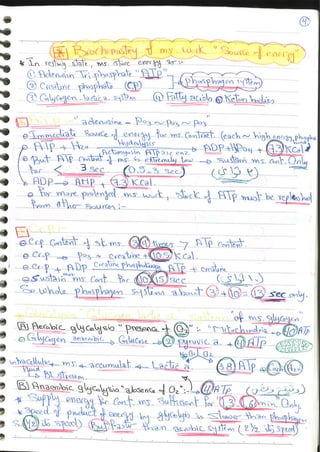 4
* Biochemistry of ms. work "Source of energy"
* In resting state, ms. store energy as :-
① Adenosin Tri phosphate "ATP"
② Creatine phosphate (CP) → phosphagen system
③ Glycogen - lactic a. system ④ Fatty acids & Keton bodies
ATP
"adenosine - PO3 ~ PO3 ~ PO3"
Immediate source of energy for ms. contract. (each ~ high energy phosphate
ATP + H2O Hydrolysis → ADP + H3PO4 + 7.3 KCal.
Actomyosin ATPase enz.
But ATP content of ms. is extremely low → sustain ms. cont. only
for < 3 sec (0.5 - 3 sec)
ADP → AMP + 7.3 KCal.
for more prolonged ms. work, stock of ATP must be replenished
from other sources :-
C.P.
C.P content of sk. ms. 3 times > ATP content
C.P → PO3 + creatine + 10.5 KCal.
C.P + ADP Creatine phosphokinase ATP + creatine
Sustain ms. cont. for 10-15 sec
So whole phosphagen systems about 3 + 10 = 13 sec only.
system of ms. glycogen
[A] Aerobic glycolysis "presence of O2" :- "Mitochondria → ATP
Glycogen anaerobic → Glucose → 2 pyruvic a. + ATP
No O2 O2
intracellular ms. + accumulat. ← Lactic a. 38 ATP + CO2 + H2O
fluid
↳ Bl. stream
[B] Anaerobic glycolysis "absence of O2" :- ATP
* Supply energy to cont. ms. sufficient for 1.3 - 1.6 min only.
* speed of product. of energy by glycolysis is slower than phosphagen
s. (1/2 its speed) But faster than aerobic system (2 1/2 its speed)